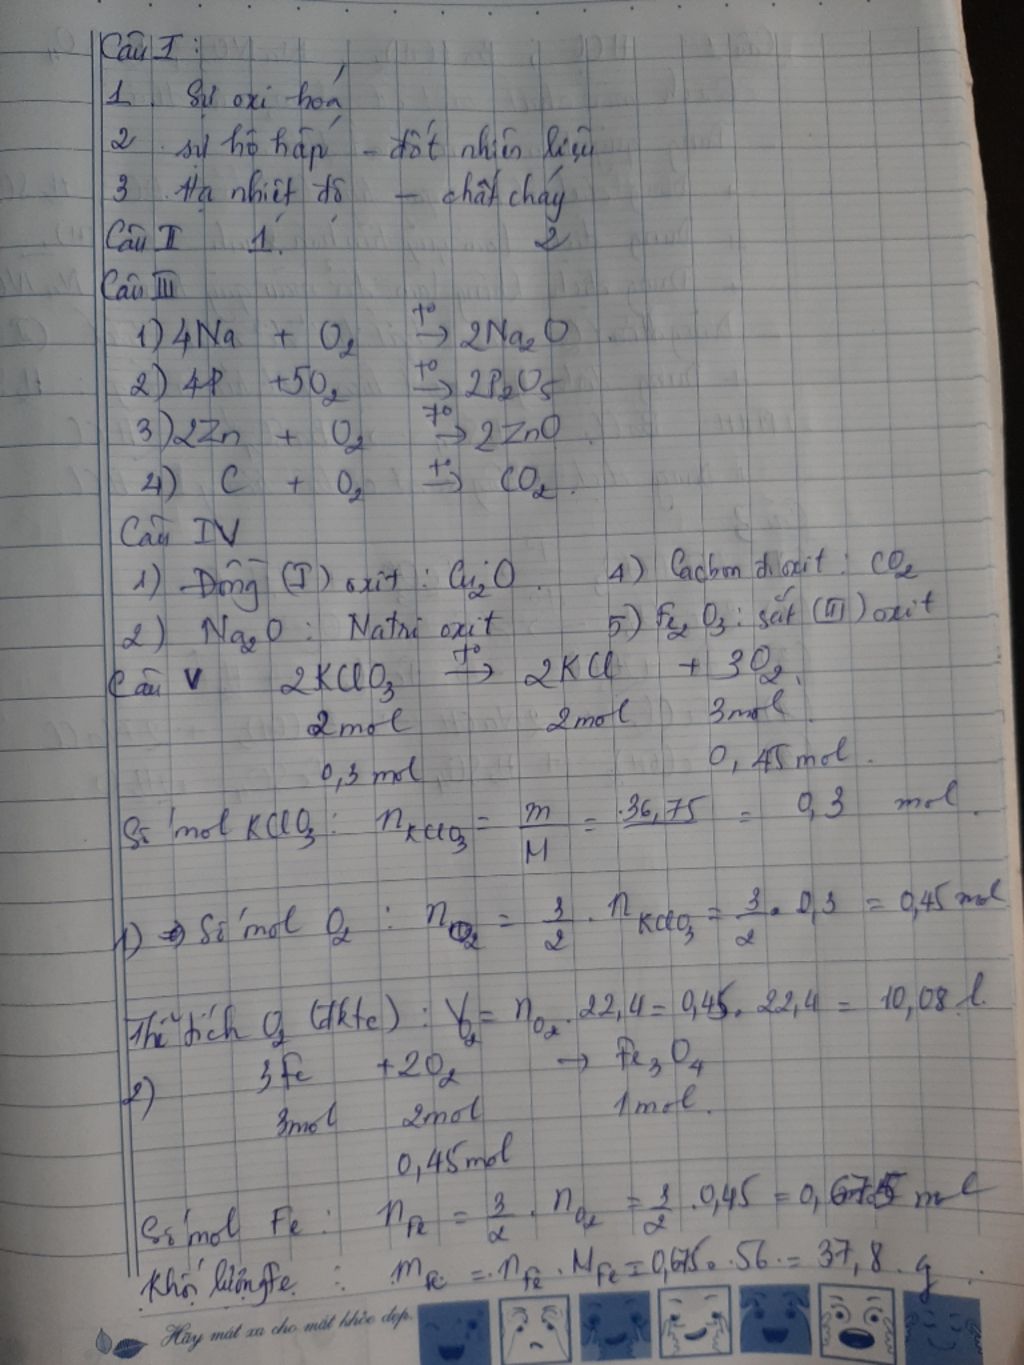 Câu I :
1. Sự oxi hoá
2. sự hô hấp - đốt nhiên liệu
3. Hạ nhiệt độ - chất cháy
Câu II 1. 2
Câu III
1) 4Na + O₂ →(t°) 2Na₂O
2) 4P + 5O₂ →(t°) 2P₂O₅
3) 2Zn + O₂ →(t°) 2ZnO.
4) C + O₂ →(t°) CO₂.
Câu IV
1) Đồng (I) oxit : Cu₂O. 4) Cacbon đioxit : CO₂
2) Na₂O : Natri oxit 5) Fe₂O₃ : sắt (III) oxit
Câu V 2KClO₃ →(t°) 2KCl + 3O₂.
2mol 2mol 3mol.
0,3 mol 0,45mol.
Số mol KClO₃ : n_KClO₃ = m/M = 36,75 = 0,3 mol
1) → Số mol O₂ : n_O₂ = 3/2 . n_KClO₃ = 3/2 . 0,3 = 0,45 mol
Thể tích O₂ (đktc) : V_O₂ = n_O₂ . 22,4 = 0,45 . 22,4 = 10,08 l.
2) 3Fe + 2O₂ → Fe₃O₄
3mol 2mol 1mol.
0,45mol
Số mol Fe : n_Fe = 3/2 . n_O₂ = 3/2 . 0,45 = 0,675 mol
Khối lượng Fe : m_Fe = n_Fe . M_Fe = 0,675 . 56 = 37,8 g.
Hãy mát xa cho mắt khỏe đẹp.